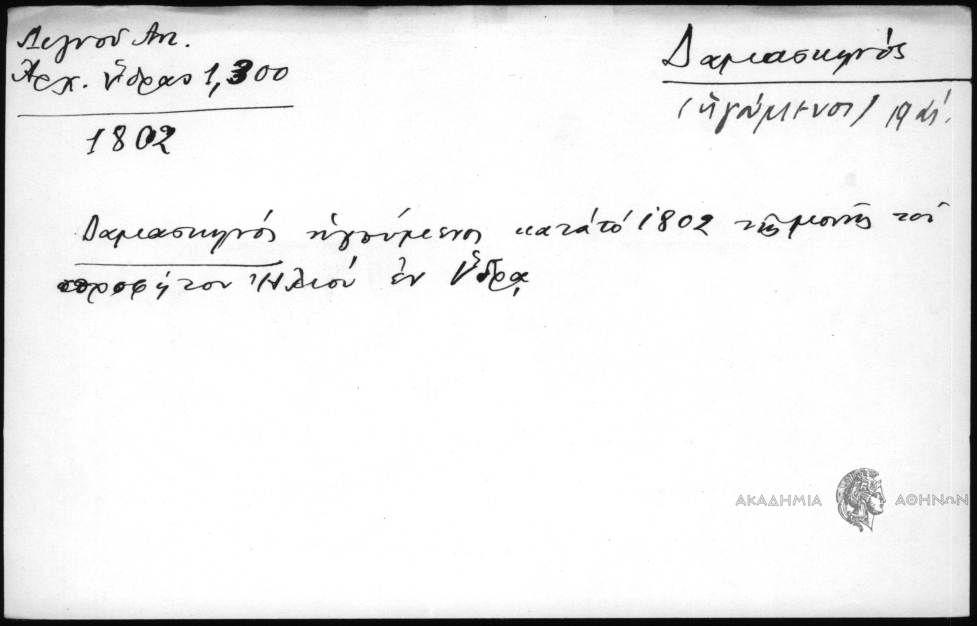 Λιγνοῦ Ἀν.
Ἀρχ. Ὕδρας 1,300
1802
Δαμασκηνός
(ἡγούμενος)
Δαμασκηνός ἡγούμενος κατά τό 1802 τῆς μονῆς τοῦ
προφήτου Ἠλιού ἐν Ὕδρᾳ
ΑΚΑΔΗΜΙΑ ΑΘΗΝΩΝ